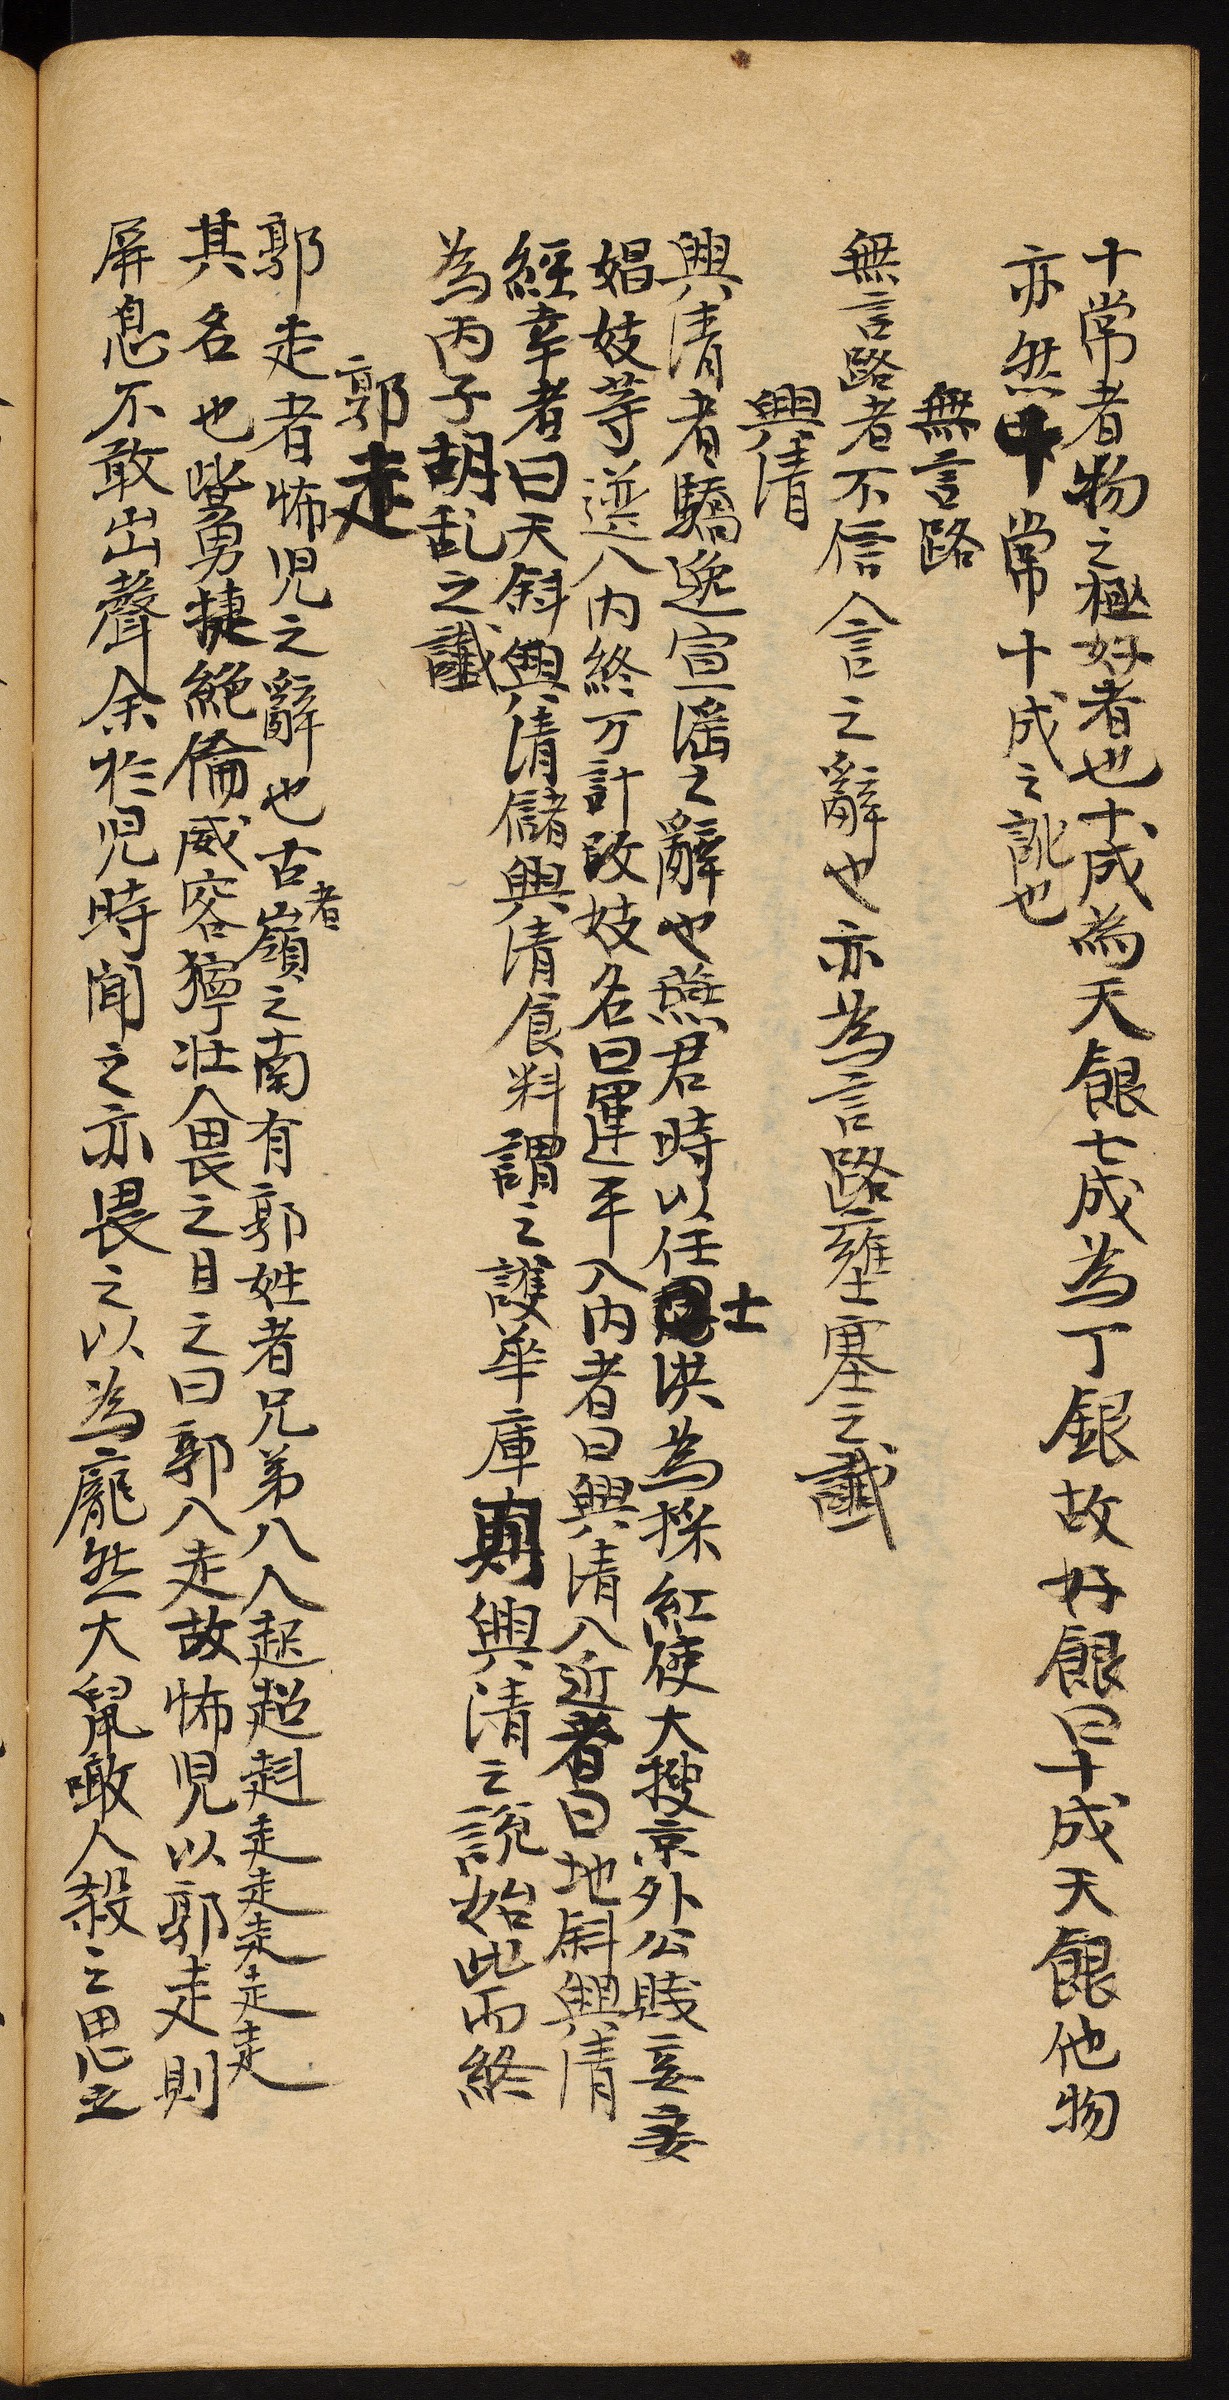 十常者物之極好者也十成為天銀七成為丁銀故好銀曰十成天銀他物
亦然中常十成之訛也
無言路
無言路者不信人言之辭也亦為言路壅塞之讖
興清
興清者驕逸宣滛之辭也燕君時以任士洪為採紅使大搜京外公賤妾妻
娼妓等選入內終万計改妓名曰運平入內者曰興清入近者曰地斜興清
經幸者曰天斜興清儲興清食料謂之護華庫則興清之說始此而終
為丙子胡乱之讖
郭走
郭走者怖児之辭也古者嶺之南有郭姓者兄弟八人起超赳走走走走走
其名也皆勇捷絶倫威容獰壯人畏之目之曰郭八走故怖児以郭走則
屏息不敢出聲余於児時聞之亦畏之以為龐然大鼠噉人殺之思之